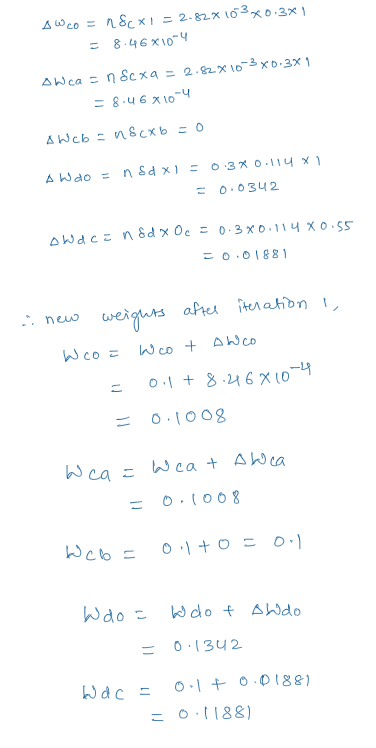 ΔWco = ηδc × 1 = 2.82 × 10⁻³ × 0.3 × 1
= 8.46 × 10⁻⁴
ΔWca = ηδc × a = 2.82 × 10⁻³ × 0.3 × 1
= 8.46 × 10⁻⁴
ΔWcb = ηδc × b = 0
ΔWdo = ηδd × 1 = 0.3 × 0.114 × 1
= 0.0342
ΔWdc = ηδd × Oc = 0.3 × 0.114 × 0.55
= 0.01881
∴ new weights after iteration 1,
Wco = Wco + ΔWco
= 0.1 + 8.46 × 10⁻⁴
= 0.1008
Wca = Wca + ΔWca
= 0.1008
Wcb = 0.1 + 0 = 0.1
Wdo = Wdo + ΔWdo
= 0.1342
Wdc = 0.1 + 0.01881
= 0.11881